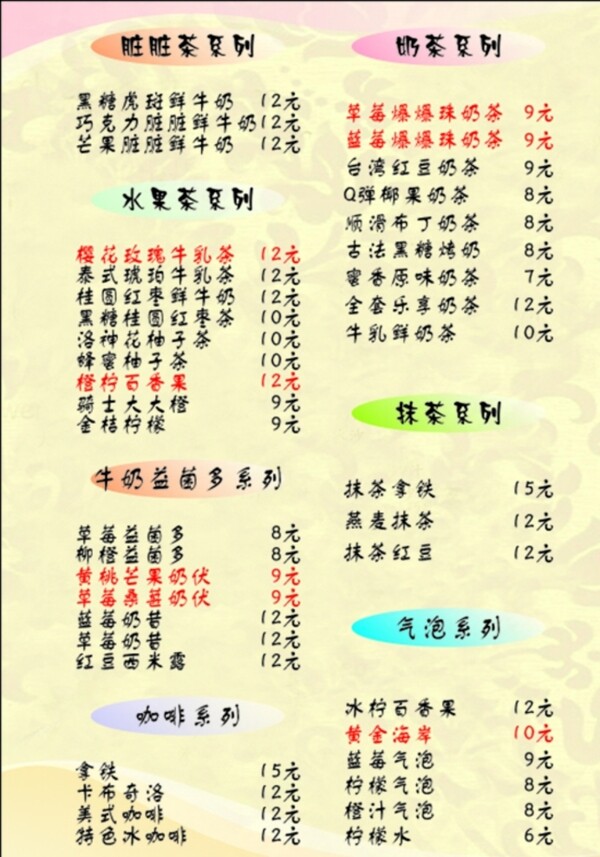 脏脏茶系列
黑糖虎斑鲜牛奶 12元
巧克力脏脏鲜牛奶12元
芒果脏脏鲜牛奶 12元
水果茶系列
樱花玫瑰牛乳茶 12元
泰式琥珀牛乳茶 12元
桂圆红枣鲜牛奶 12元
黑糖桂圆红枣茶 10元
洛神花柚子茶 10元
蜂蜜柚子茶 10元
橙柠百香果 12元
骑士大大橙 9元
金桔柠檬 9元
牛奶益菌多系列
草莓益菌多 8元
柳橙益菌多 8元
黄桃芒果奶伏 9元
草莓桑葚奶伏 9元
蓝莓奶昔 12元
草莓奶昔 12元
红豆西米露 12元
咖啡系列
拿铁 15元
卡布奇洛 12元
美式咖啡 12元
特色冰咖啡 12元
奶茶系列
草莓爆爆珠奶茶 9元
蓝莓爆爆珠奶茶 9元
台湾红豆奶茶 9元
Q弹椰果奶茶 8元
顺滑布丁奶茶 8元
古法黑糖烤奶 8元
蜜香原味奶茶 7元
全套乐享奶茶 12元
牛乳鲜奶茶 10元
抹茶系列
抹茶拿铁 15元
燕麦抹茶 12元
抹茶红豆 12元
气泡系列
冰柠百香果 12元
黄金海岸 10元
蓝莓气泡 9元
柠檬气泡 8元
橙汁气泡 8元
柠檬水 6元